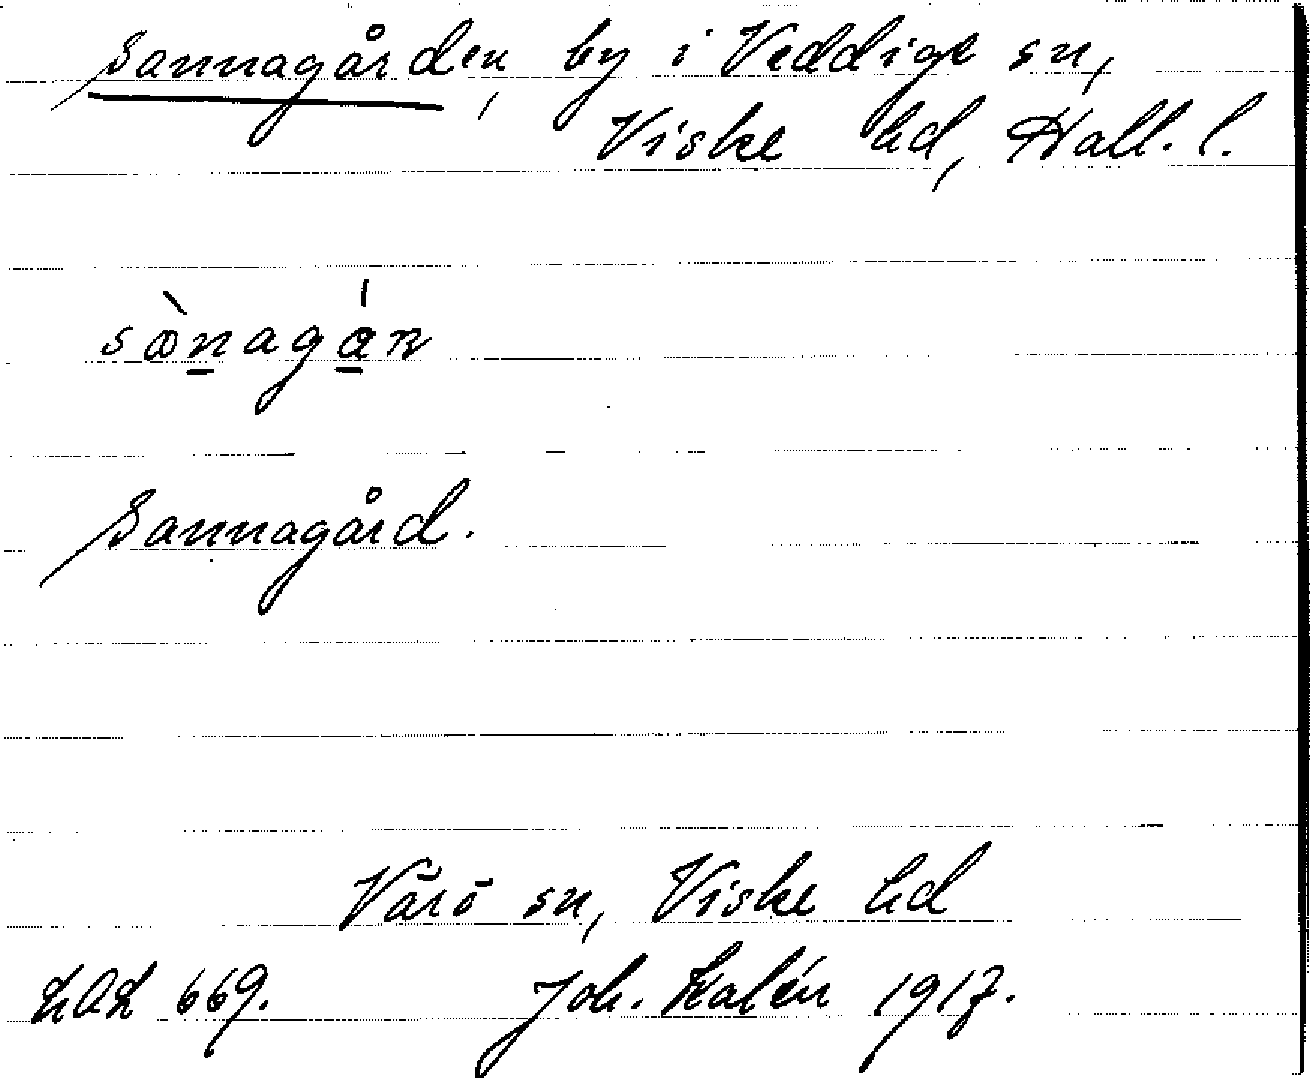 Sannagården, by i Veddige sn,
Viske hd, Hall. l.
sànagán
Sannagård.
Värö sn, Viske hd
LAL 669. Joh. Kalén 1917.